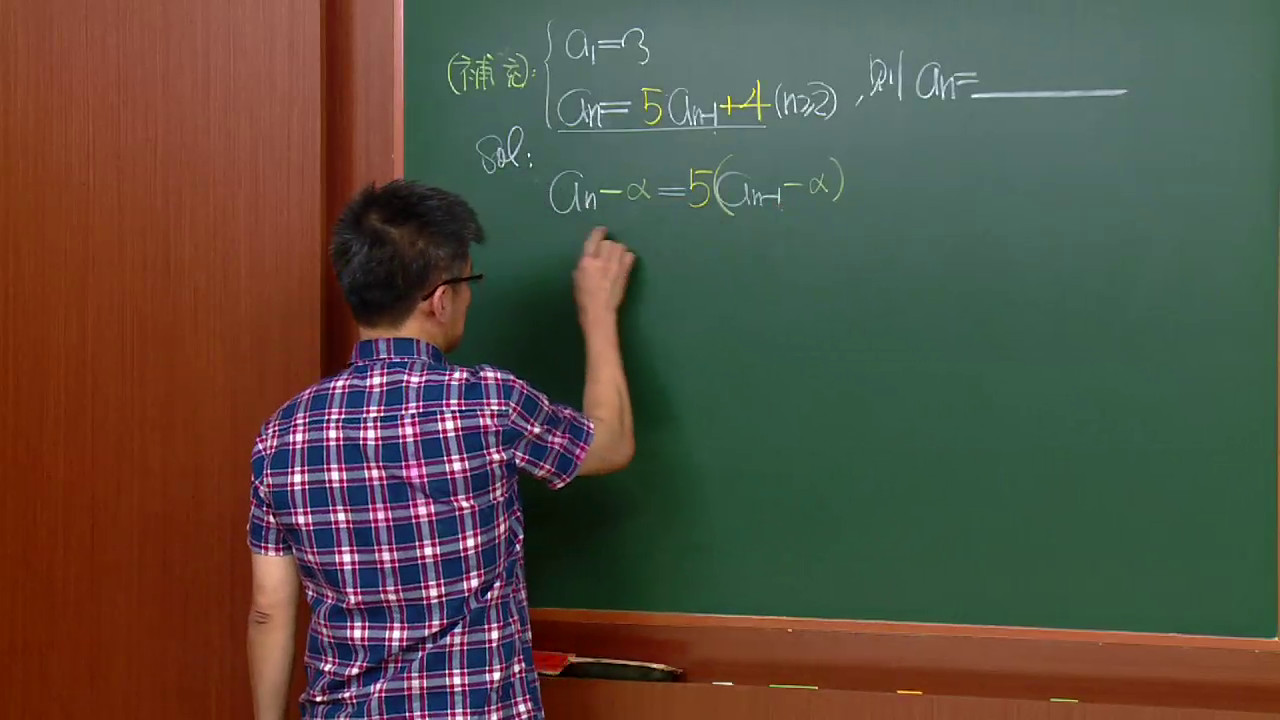 (補充): { a₁=3
aₙ= 5aₙ₋₁+4 (n≥2) , 則 aₙ=______
Sol:
aₙ-α=5(aₙ₋₁-α)